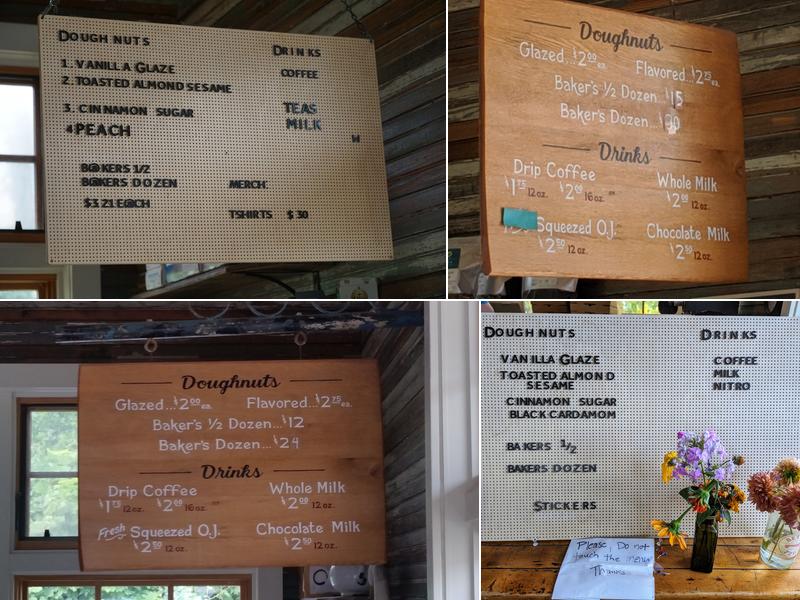 DOUGH NUTS
DRINKS
1. VANILLA GLAZE
COFFEE
2. TOASTED ALMOND SESAME
3. CINNAMON SUGAR
TEAS
4 PEACH
MILK
W
B@KERS 1/2
B@KERS DOZEN
MERCH.
$3 21 E@CH
TSHIRTS $30
Doughnuts
Glazed...$2.00 ea.
Flavored...$2.75 ea.
Baker's 1/2 Dozen...$15
Baker's Dozen...
Drinks
Drip Coffee
Whole Milk
$1.75 12 oz. $2.00 16 oz.
$2.00 12 oz.
Squeezed O.J.
Chocolate Milk
$2.50 12 oz.
$2.50 12 oz.
Doughnuts
Glazed...$2.00 ea.
Flavored...$2.25 ea.
Baker's 1/2 Dozen...$12
Baker's Dozen...$24
Drinks
Drip Coffee
Whole Milk
$1.75 12 oz. $2.00 16 oz.
$2.00 12 oz.
Fresh Squeezed O.J.
Chocolate Milk
$2.50 12 oz.
$2.50 12 oz.
DOUGH NUTS
DRINKS
VANILLA GLAZE
COFFEE
TOASTED ALMOND
MILK
SESAME
NITRO
CINNAMON SUGAR
BLACK CARDAMOM
BAKERS 1/2
BAKERS DOZEN
STICKERS
Please, Do not
touch the menu
Thanks